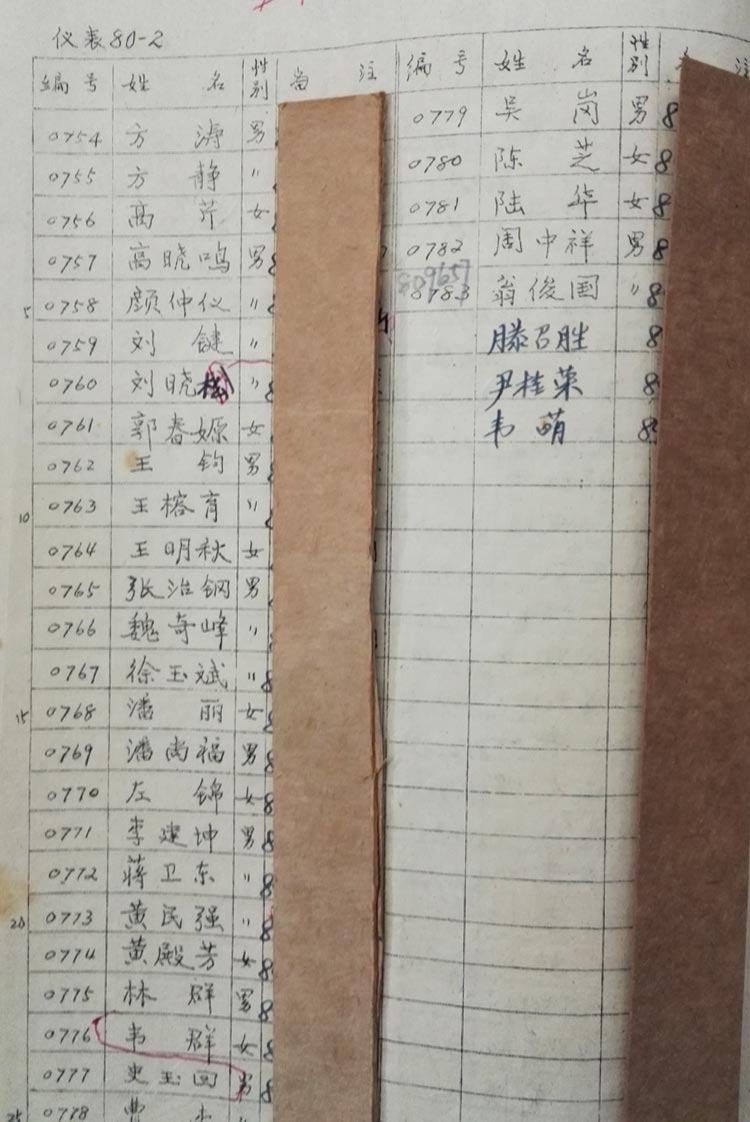 仪表80-2
编号 姓名 性别 备注
0754 方涛 男
0755 方静 〃
0756 高芹 女
0757 高晓鸣 男
5 0758 颜仲仪 〃
0759 刘键 〃
0760 刘晓 〃
0761 郭春嫄 女
0762 王钧 男
10 0763 王榕育 〃
0764 王明秋 女
0765 张治钢 男
0766 魏奇峰 〃
0767 徐玉斌 〃 8
15 0768 潘丽 女 8
0769 潘尚福 男 8
0770 左锦 女 8
0771 李建坤 男 8
0772 蒋卫东 〃 8
20 0773 黄民强 〃 8
0774 黄殿芳 女 8
0775 林群 男 8
0776 韦群 女 8
0777 史玉回 男 8
25 0778 曹
编号 姓名 性别 注
0779 吴岗 男 8
0780 陈芝 女 8
0781 陆华 女 8
0782 周中祥 男 8
0783 翁俊国 〃 8
9657
滕召胜 8
尹桂荣 8
韦萌 8